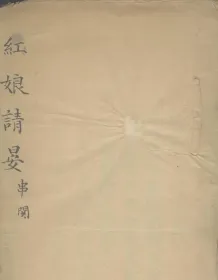 紅娘請晏
串関